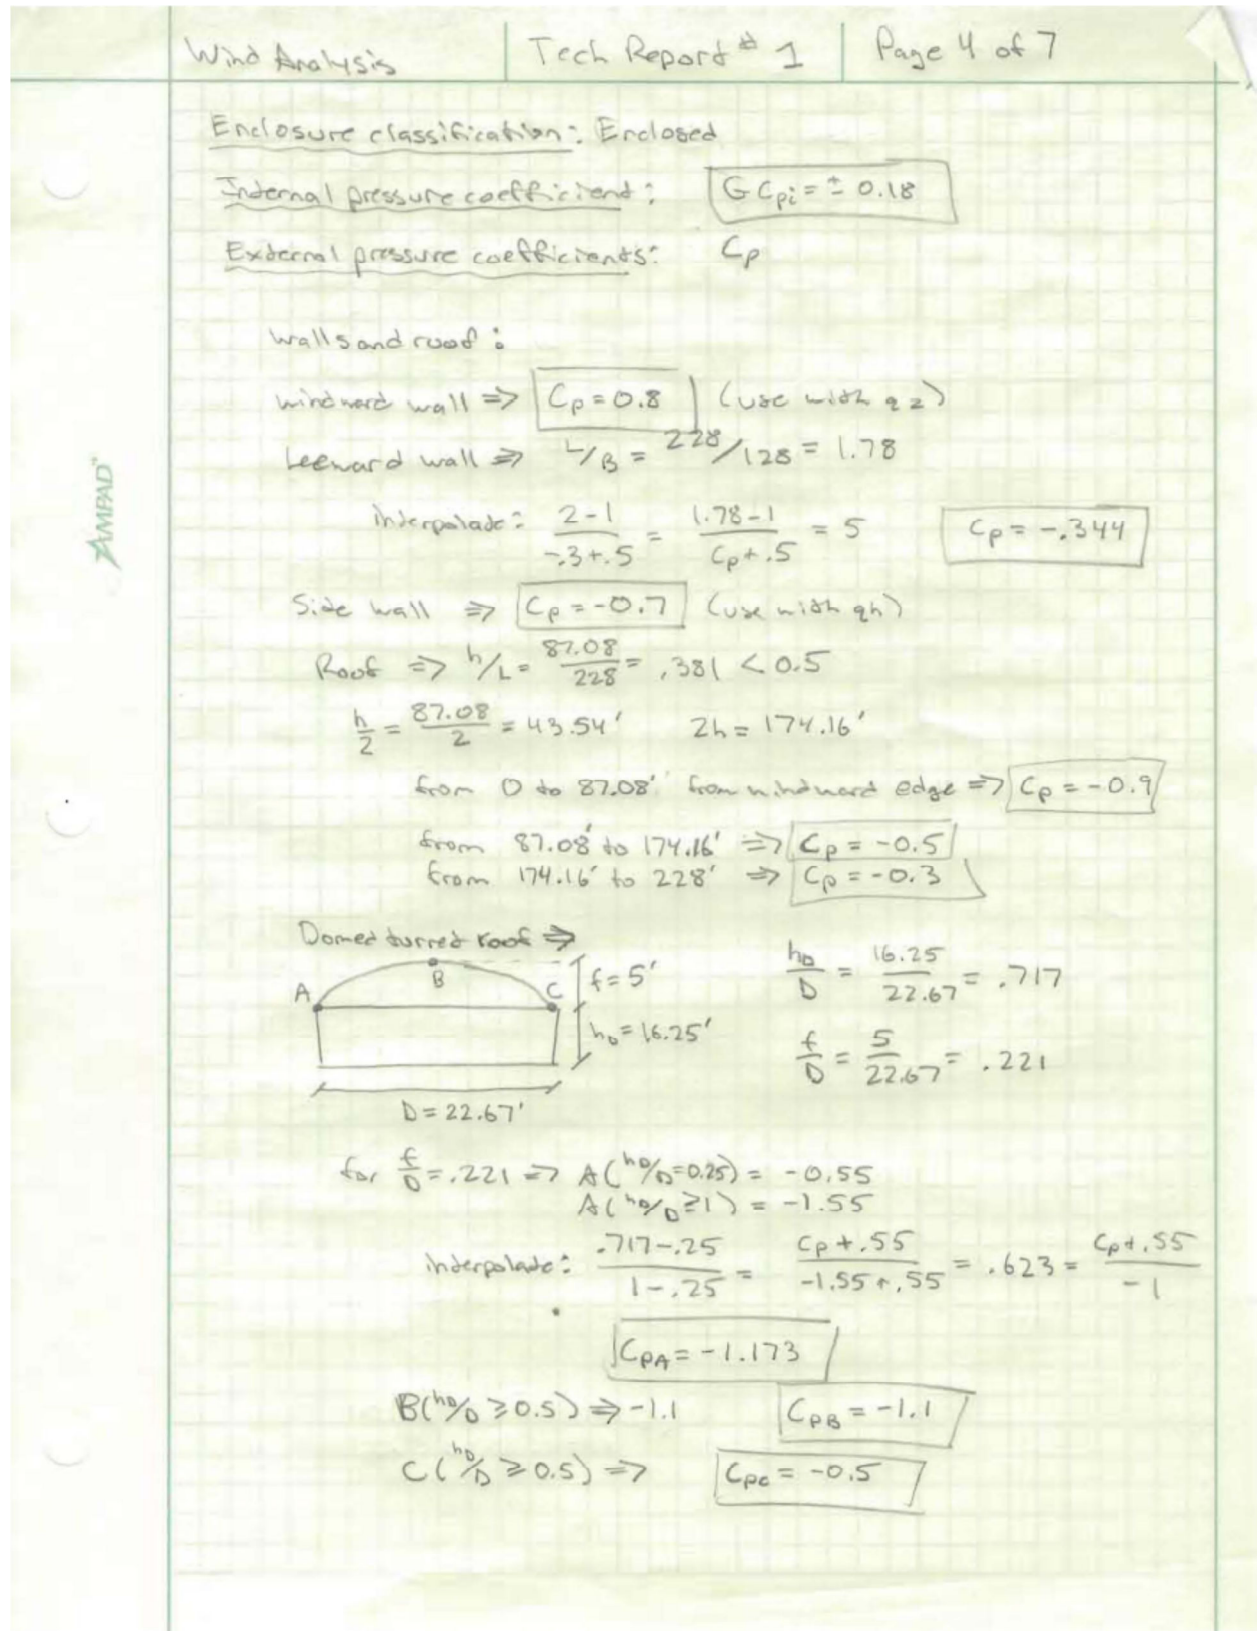 Wind Analysis | Tech Report # 1 | Page 4 of 7
Enclosure classification: Enclosed
Internal pressure coefficient: GCpi = ± 0.18
External pressure coefficients: Cp
walls and roof:
windward wall => Cp = 0.8 (use with qz)
Leeward wall => L/B = 228/128 = 1.78
interpolate: 2-1/-.3+.5 = 1.78-1/Cp+.5 = 5 Cp = -.344
Side wall => Cp = -0.7 (use with qh)
Roof => h/L = 87.08/228 = .381 < 0.5
h/2 = 87.08/2 = 43.54' 2h = 174.16'
from 0 to 87.08' from windward edge => Cp = -0.9
from 87.08' to 174.16' => Cp = -0.5
from 174.16' to 228' => Cp = -0.3
Domed turret roof =>
A B C f = 5' hD/D = 16.25/22.67 = .717
hD = 16.25' f/D = 5/22.67 = .221
D = 22.67'
for f/D = .221 => A(hD/D=0.25) = -0.55
A(hD/D≥1) = -1.55
interpolate: .717-.25/1-.25 = Cp+.55/-1.55+.55 = .623 = Cp+.55/-1
CpA = -1.173
B(hD/D ≥ 0.5) => -1.1 CpB = -1.1
C(hD/D ≥ 0.5) => Cpc = -0.5
AMPAD